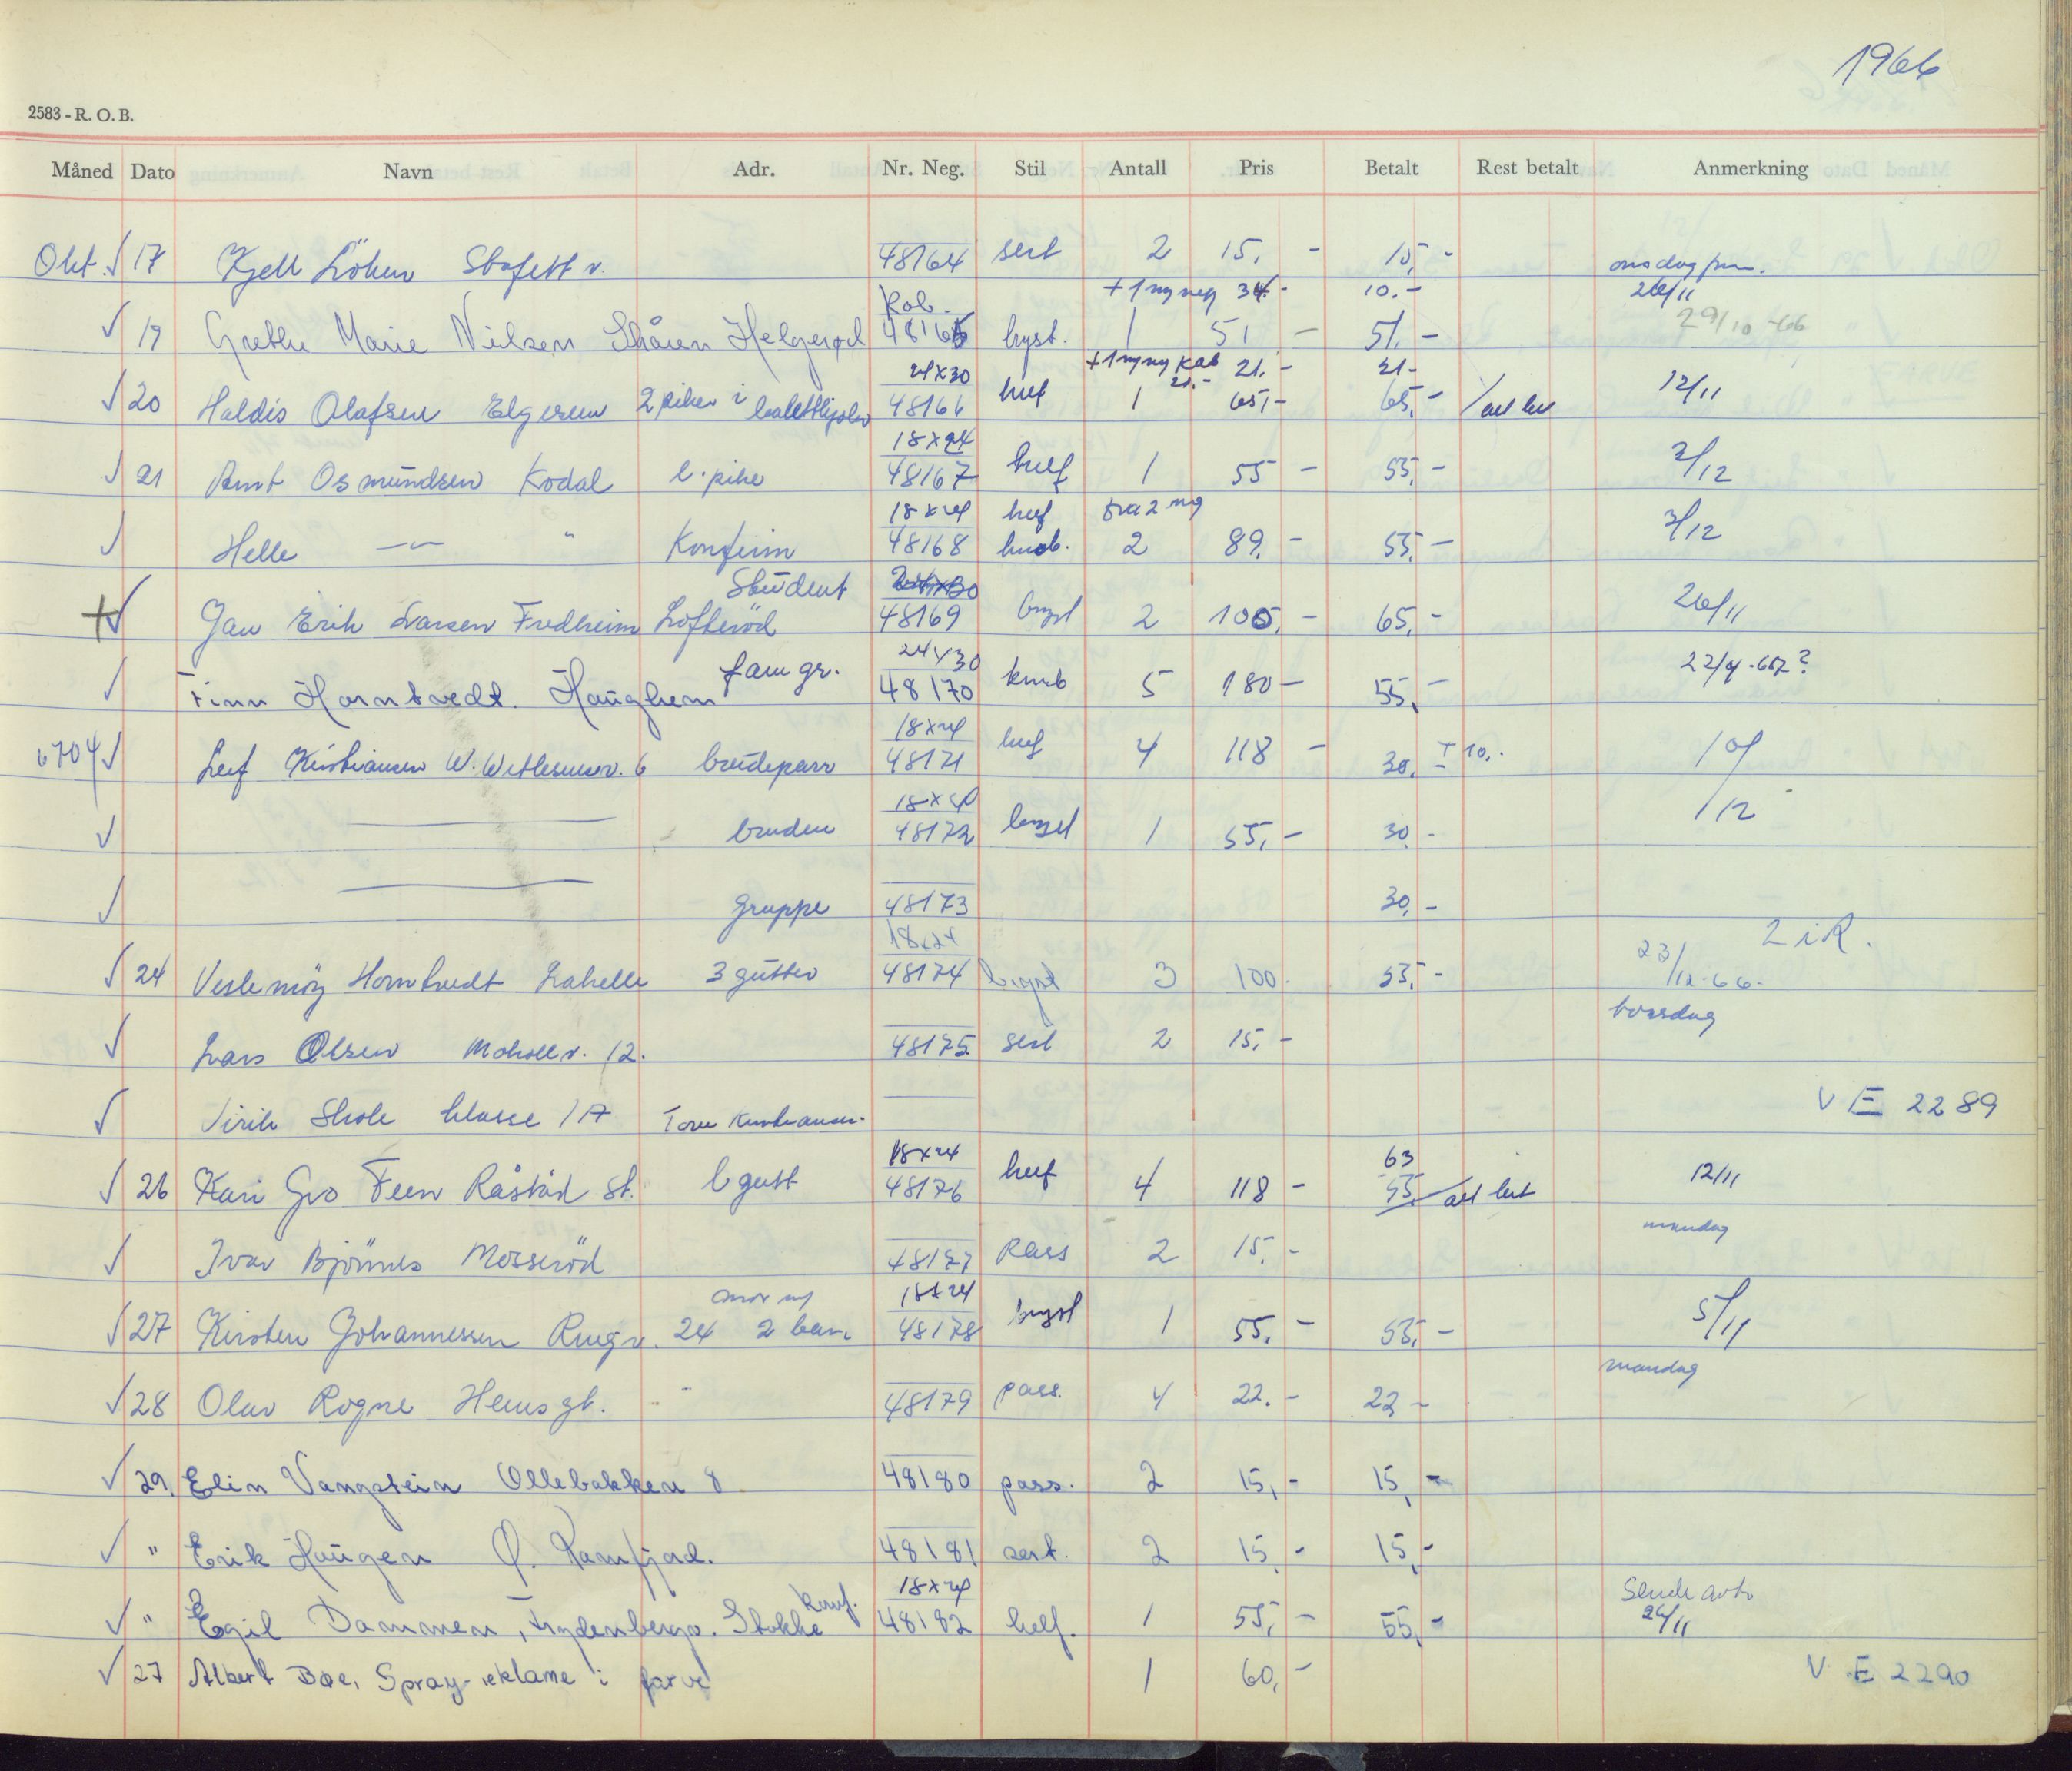 1966
2583 - R. O. B.
Måned Dato Navn Adr. Nr. Neg. Stil Antall Pris Betalt Rest betalt Anmerkning
Okt. √ 17 Kjell Löken Stafett v. 48164 sert 2 15,- 15,- onsdag
Kab. +1 ny neg 34.- 10.- 26/11
√ 19 Grethe Marie Nilsen Skåren Helgerød 48165 byst. 1 51,- 51,- 29/10-66
24x30 +1 ny neg Kab 21.- 21.- 21-
√ 20 Haldis Olafsen Elgesem 2 piker i 48166 helf 1 65,- 65,- 12/11
18x24
√ 21 Amt Osmundsen Kodal l. pike 48167 helf 1 55- 55,- 3/12
18x24 helf fra 2 neg
√ Helle — " Konfirm 48168 kneb. 2 89.- 55,- 3/12
Student 24x30
+√ Jan Erik Larsen Fredheim Lofterød 48169 byst 2 105,- 65,- 26/11
fam gr. 24x30
√ Finn Horntvedt. Haughem 48170 kneb 5 180- 55,-
18x24
6704 √ Leif Kristiansen 6 brudepar 48171 helf 4 118- 30,- + 10,- 10/12
18x24
√ — bruden 48172 byst 1 55,- 30.-
√ — gruppe 48173 30,-
18x24 2 i R.
√ 24 Veslemöy Horntvedt Labelle 3 gutter 48174 byst 3 100. 55,- 23/12-66.
torsdag
√ Lars Olsen Moholt v. 12. 48175 sert 2 15,-
√ Virik Skole klasse 1 A Tove Kristiansen. V E 2289
18x24 63
√ 26 Kari Gro Feen Råstad St. l gutt 48176 helf 4 118- 55,- 12/11
mandag
√ Ivar Bjönnes Mosseröd 48177 Pass 2 15.-
18x24
√ 27 Kirsten Johannessen Ringv. 24 2 barn 48178 byst 1 55,- 55,- 5/11
mandag
√ 28 Olav Rogne Heimsgt. - 48179 pass. 4 22.- 22-
√ 29. Elin Vangstein Ollebakken 8 48180 pass. 2 15,- 15,-
√ " Erik Haugen Ø. Ramfjord. 48181 sert. 2 15,- 15,-
konf. 18x24 Sende
√ " Egil Dammen, Frydenbergv. Stokke 48182 helf. 1 55,- 55,- 26/11
√ 27 Albert Bøe, Spray-reklame i farve 1 60,- V E 2290